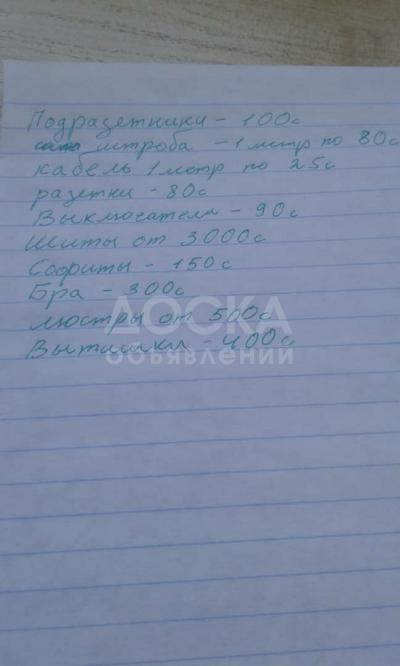 Подразетники - 100с
штроба - 1 мотр по 80с
кабель 1 мотр по 25с
разетки - 80с
Выключатели - 90с
Шиты от 3000с
Софиты - 150с
Бра - 300с
люстры от 500с
Вытишки - 400с
ДОСКА
ОБЪЯВЛЕНИЙ